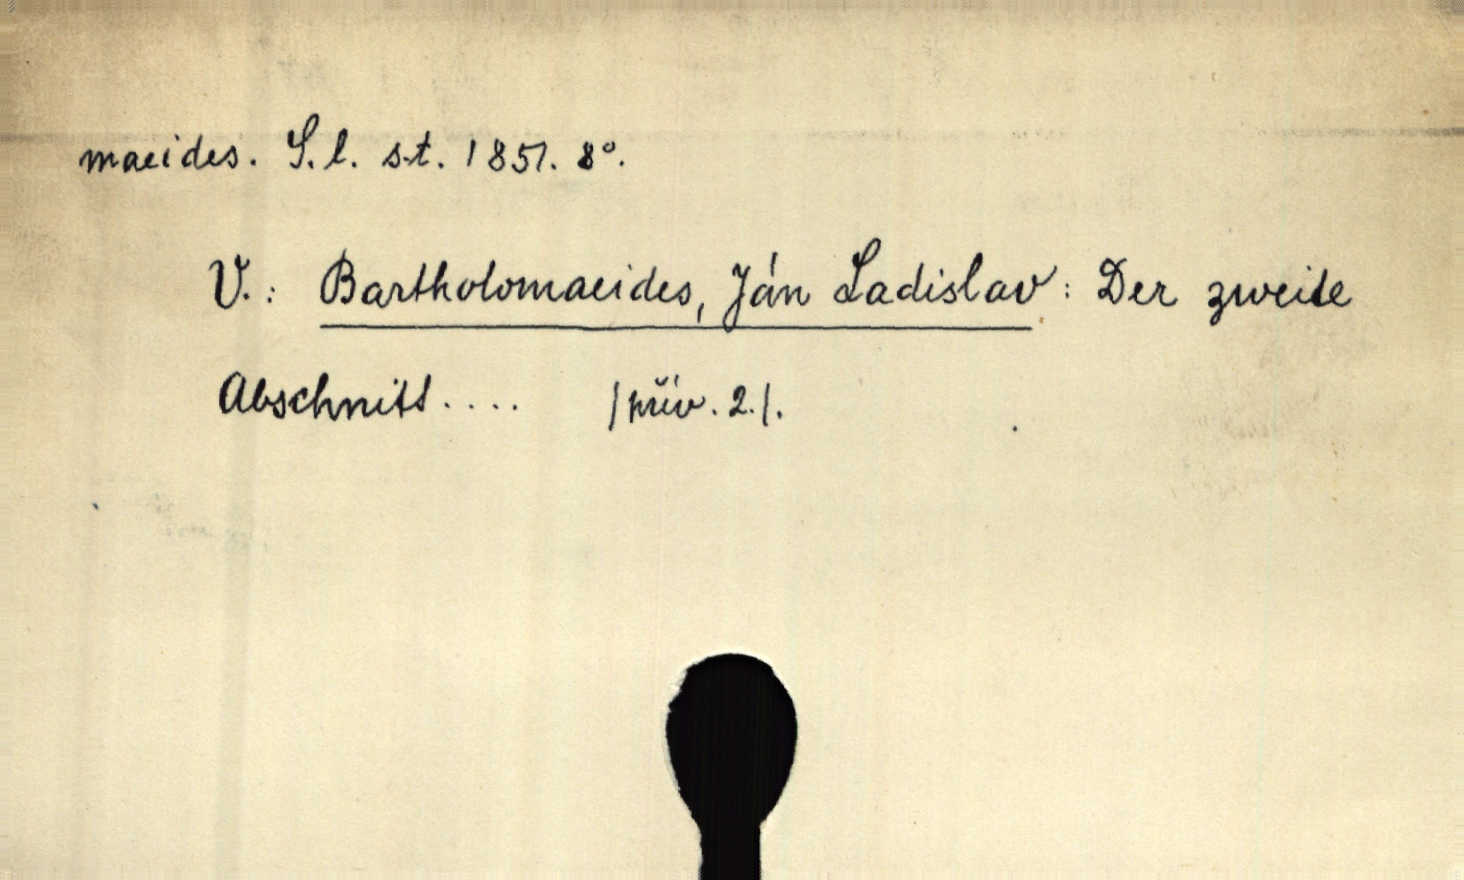 maeides. S. l. s. t. 1851. 8°.
V.: Bartholomaeides, Ján Ladislav: Der zweite
Abschnitt.... /přív. 2./.